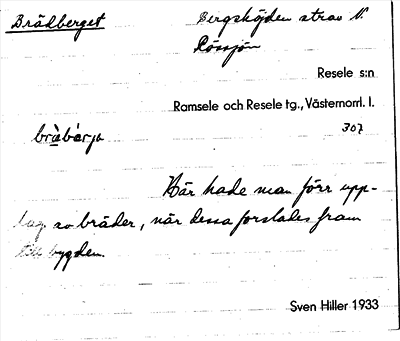 Brädberget
Bergshöjden strax N.
Rössjön
Resele s:n
Ramsele och Resele tg., Västernorrl. l.
307
brä̀bær̀ja
Här hade man förr upp-
lag av bräder, när dessa forslades fram
till bygden.
Sven Hiller 1933